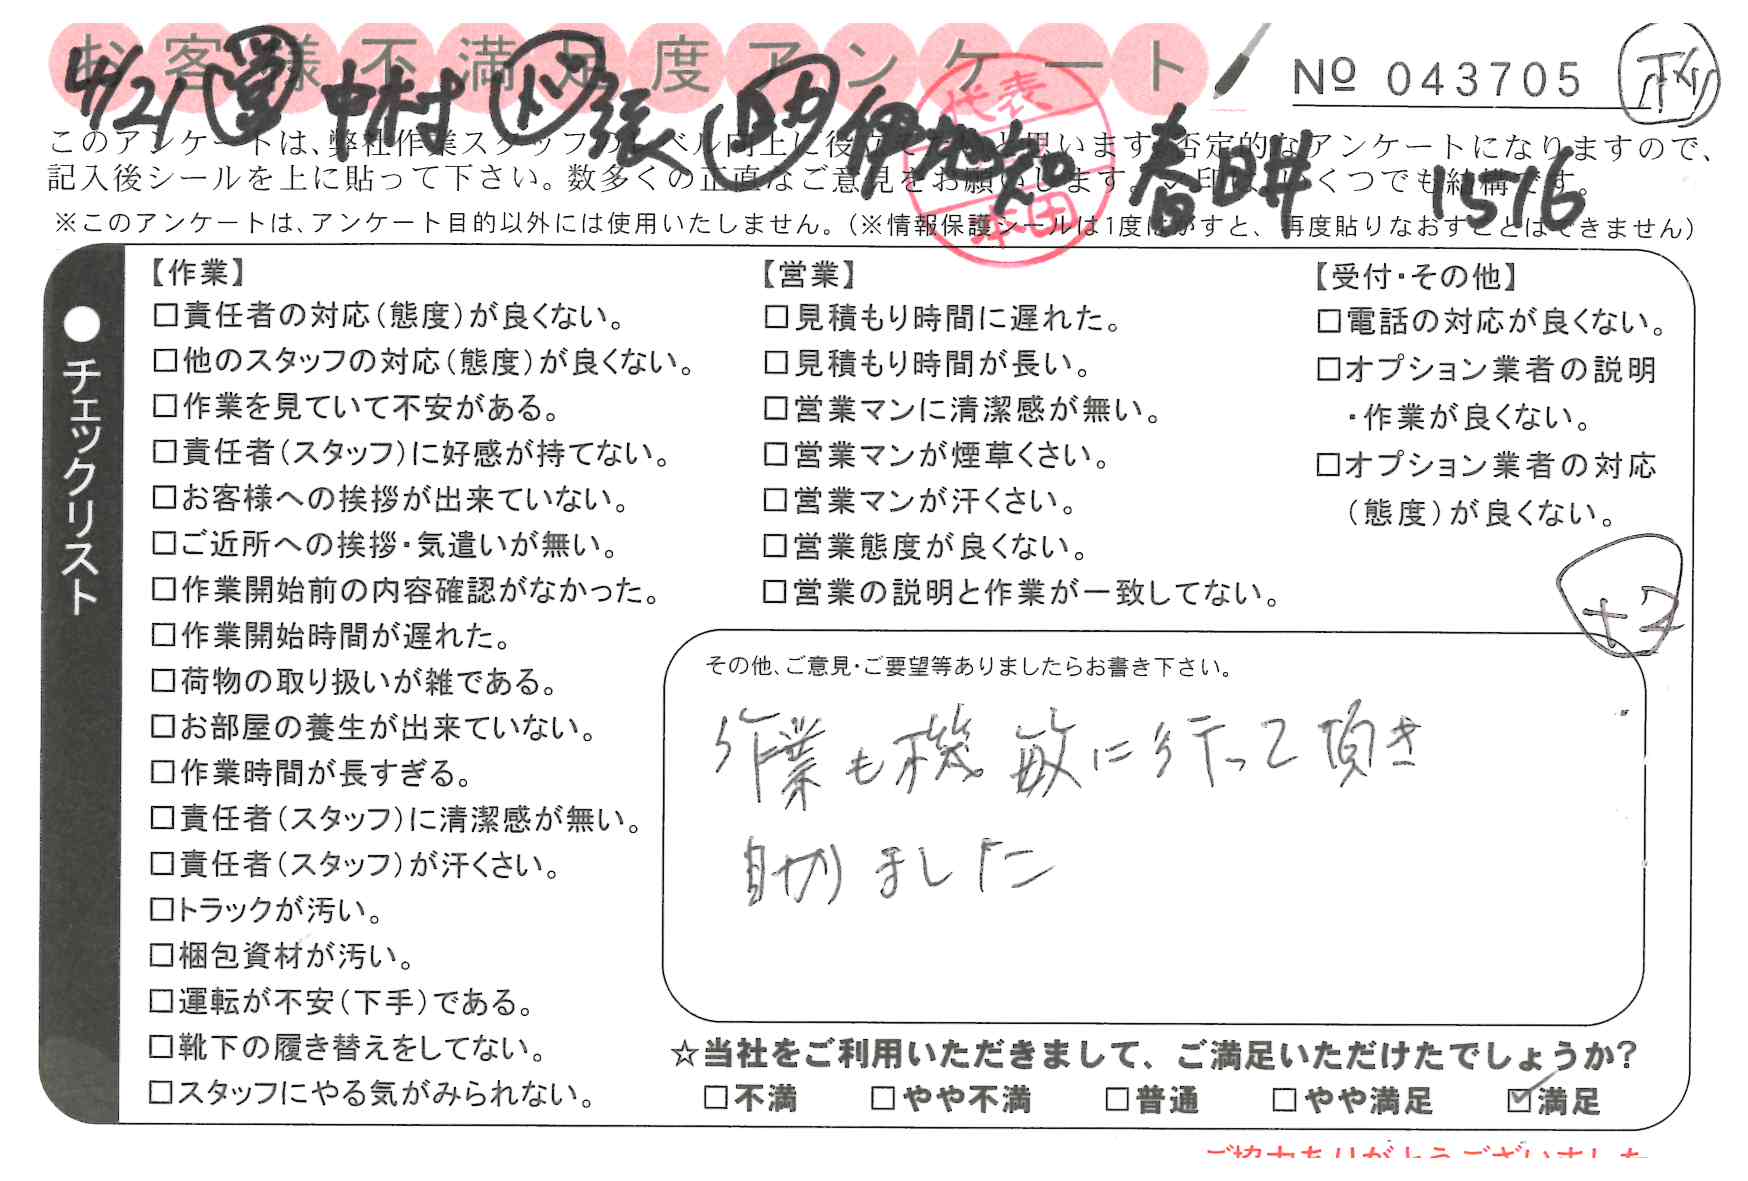 お客様不満足度アンケート
№ 043705
4/21 営 中村 ト 張 助 伊地知 春田井 1576
このアンケートは、弊社作業スタッフのレベル向上に役立てたいと思います。否定的なアンケートになりますので、
記入後シールを上に貼って下さい。数多くの正直なご意見をお願いします。✓印は、いくつでも結構です。
※このアンケートは、アンケート目的以外には使用いたしません。(※情報保護シールは1度はがすと、再度貼りなおすことはできません)
代表
本田
●チェックリスト
【作業】
□責任者の対応(態度)が良くない。
□他のスタッフの対応(態度)が良くない。
□作業を見ていて不安がある。
□責任者(スタッフ)に好感が持てない。
□お客様への挨拶が出来ていない。
□ご近所への挨拶・気遣いが無い。
□作業開始前の内容確認がなかった。
□作業開始時間が遅れた。
□荷物の取り扱いが雑である。
□お部屋の養生が出来ていない。
□作業時間が長すぎる。
□責任者(スタッフ)に清潔感が無い。
□責任者(スタッフ)が汗くさい。
□トラックが汚い。
□梱包資材が汚い。
□運転が不安(下手)である。
□靴下の履き替えをしてない。
□スタッフにやる気がみられない。
【営業】
□見積もり時間に遅れた。
□見積もり時間が長い。
□営業マンに清潔感が無い。
□営業マンが煙草くさい。
□営業マンが汗くさい。
□営業態度が良くない。
□営業の説明と作業が一致してない。
【受付・その他】
□電話の対応が良くない。
□オプション業者の説明
・作業が良くない。
□オプション業者の対応
(態度)が良くない。
+2
その他、ご意見・ご要望等ありましたらお書き下さい。
作業も機敏に行って頂き
助かりました
☆当社をご利用いただきまして、ご満足いただけたでしょうか?
□不満 □やや不満 □普通 □やや満足 ☑満足
ご協力ありがとうございました